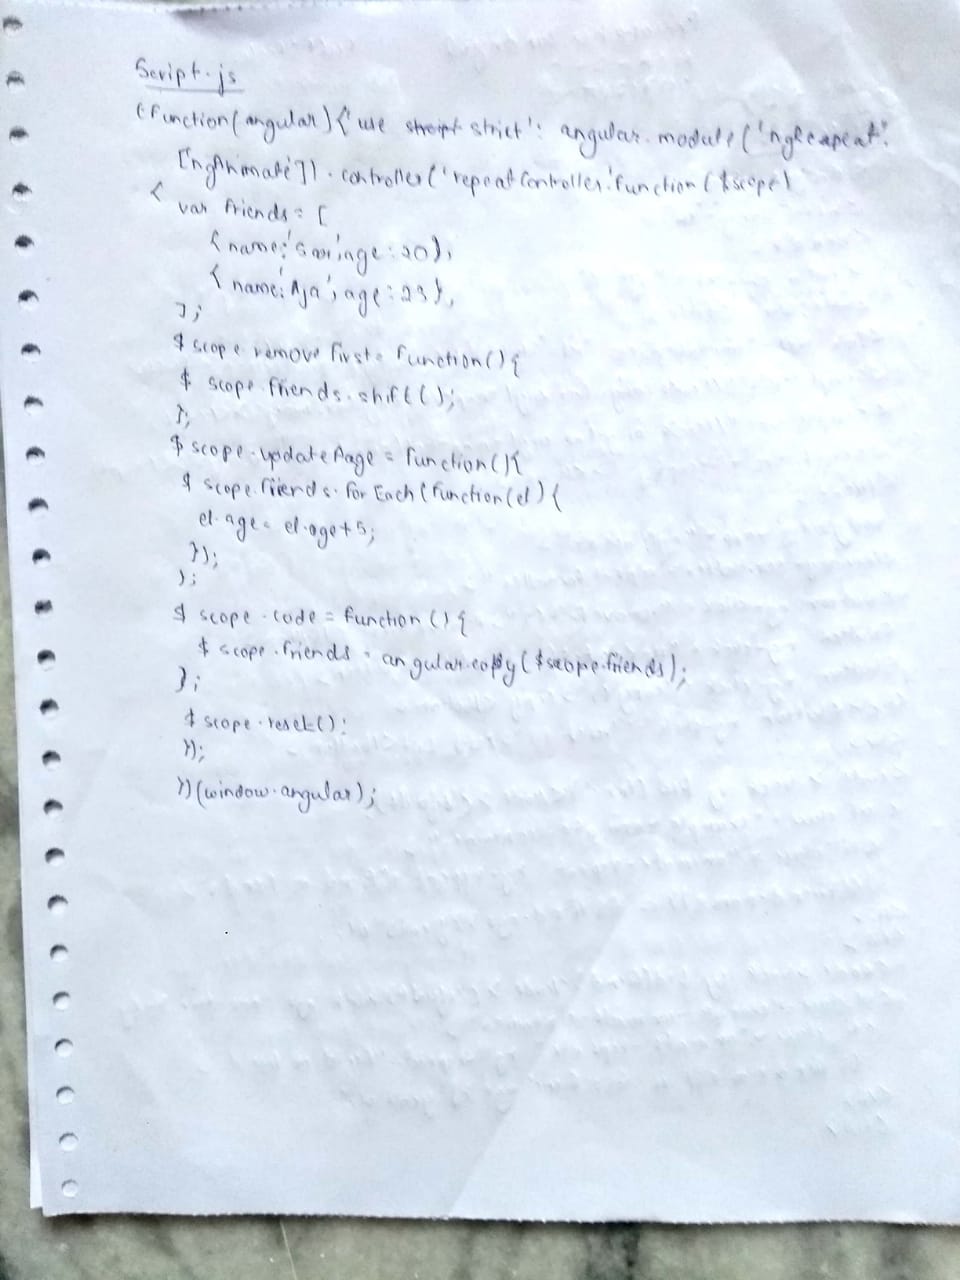 Script.js
(function(angular){'use strict': angular.module('ngReapeat'.
['ngAnimate']).controller('repeatController.'function($scope)
{
var friends = [
{name:'Sai',age:20},
{name:'Aja',age:23},
];
$ scope remove first = function(){
$ scope.friends.shift();
};
$ scope.updateAage = function(){
$ scope.friends.for Each(function(el){
el.age = el.age+5;
});
};
$ scope.code = function(){
$ scope.friends = angular.copy($scope.friends);
};
$ scope.reset();
});
})(window.angular);